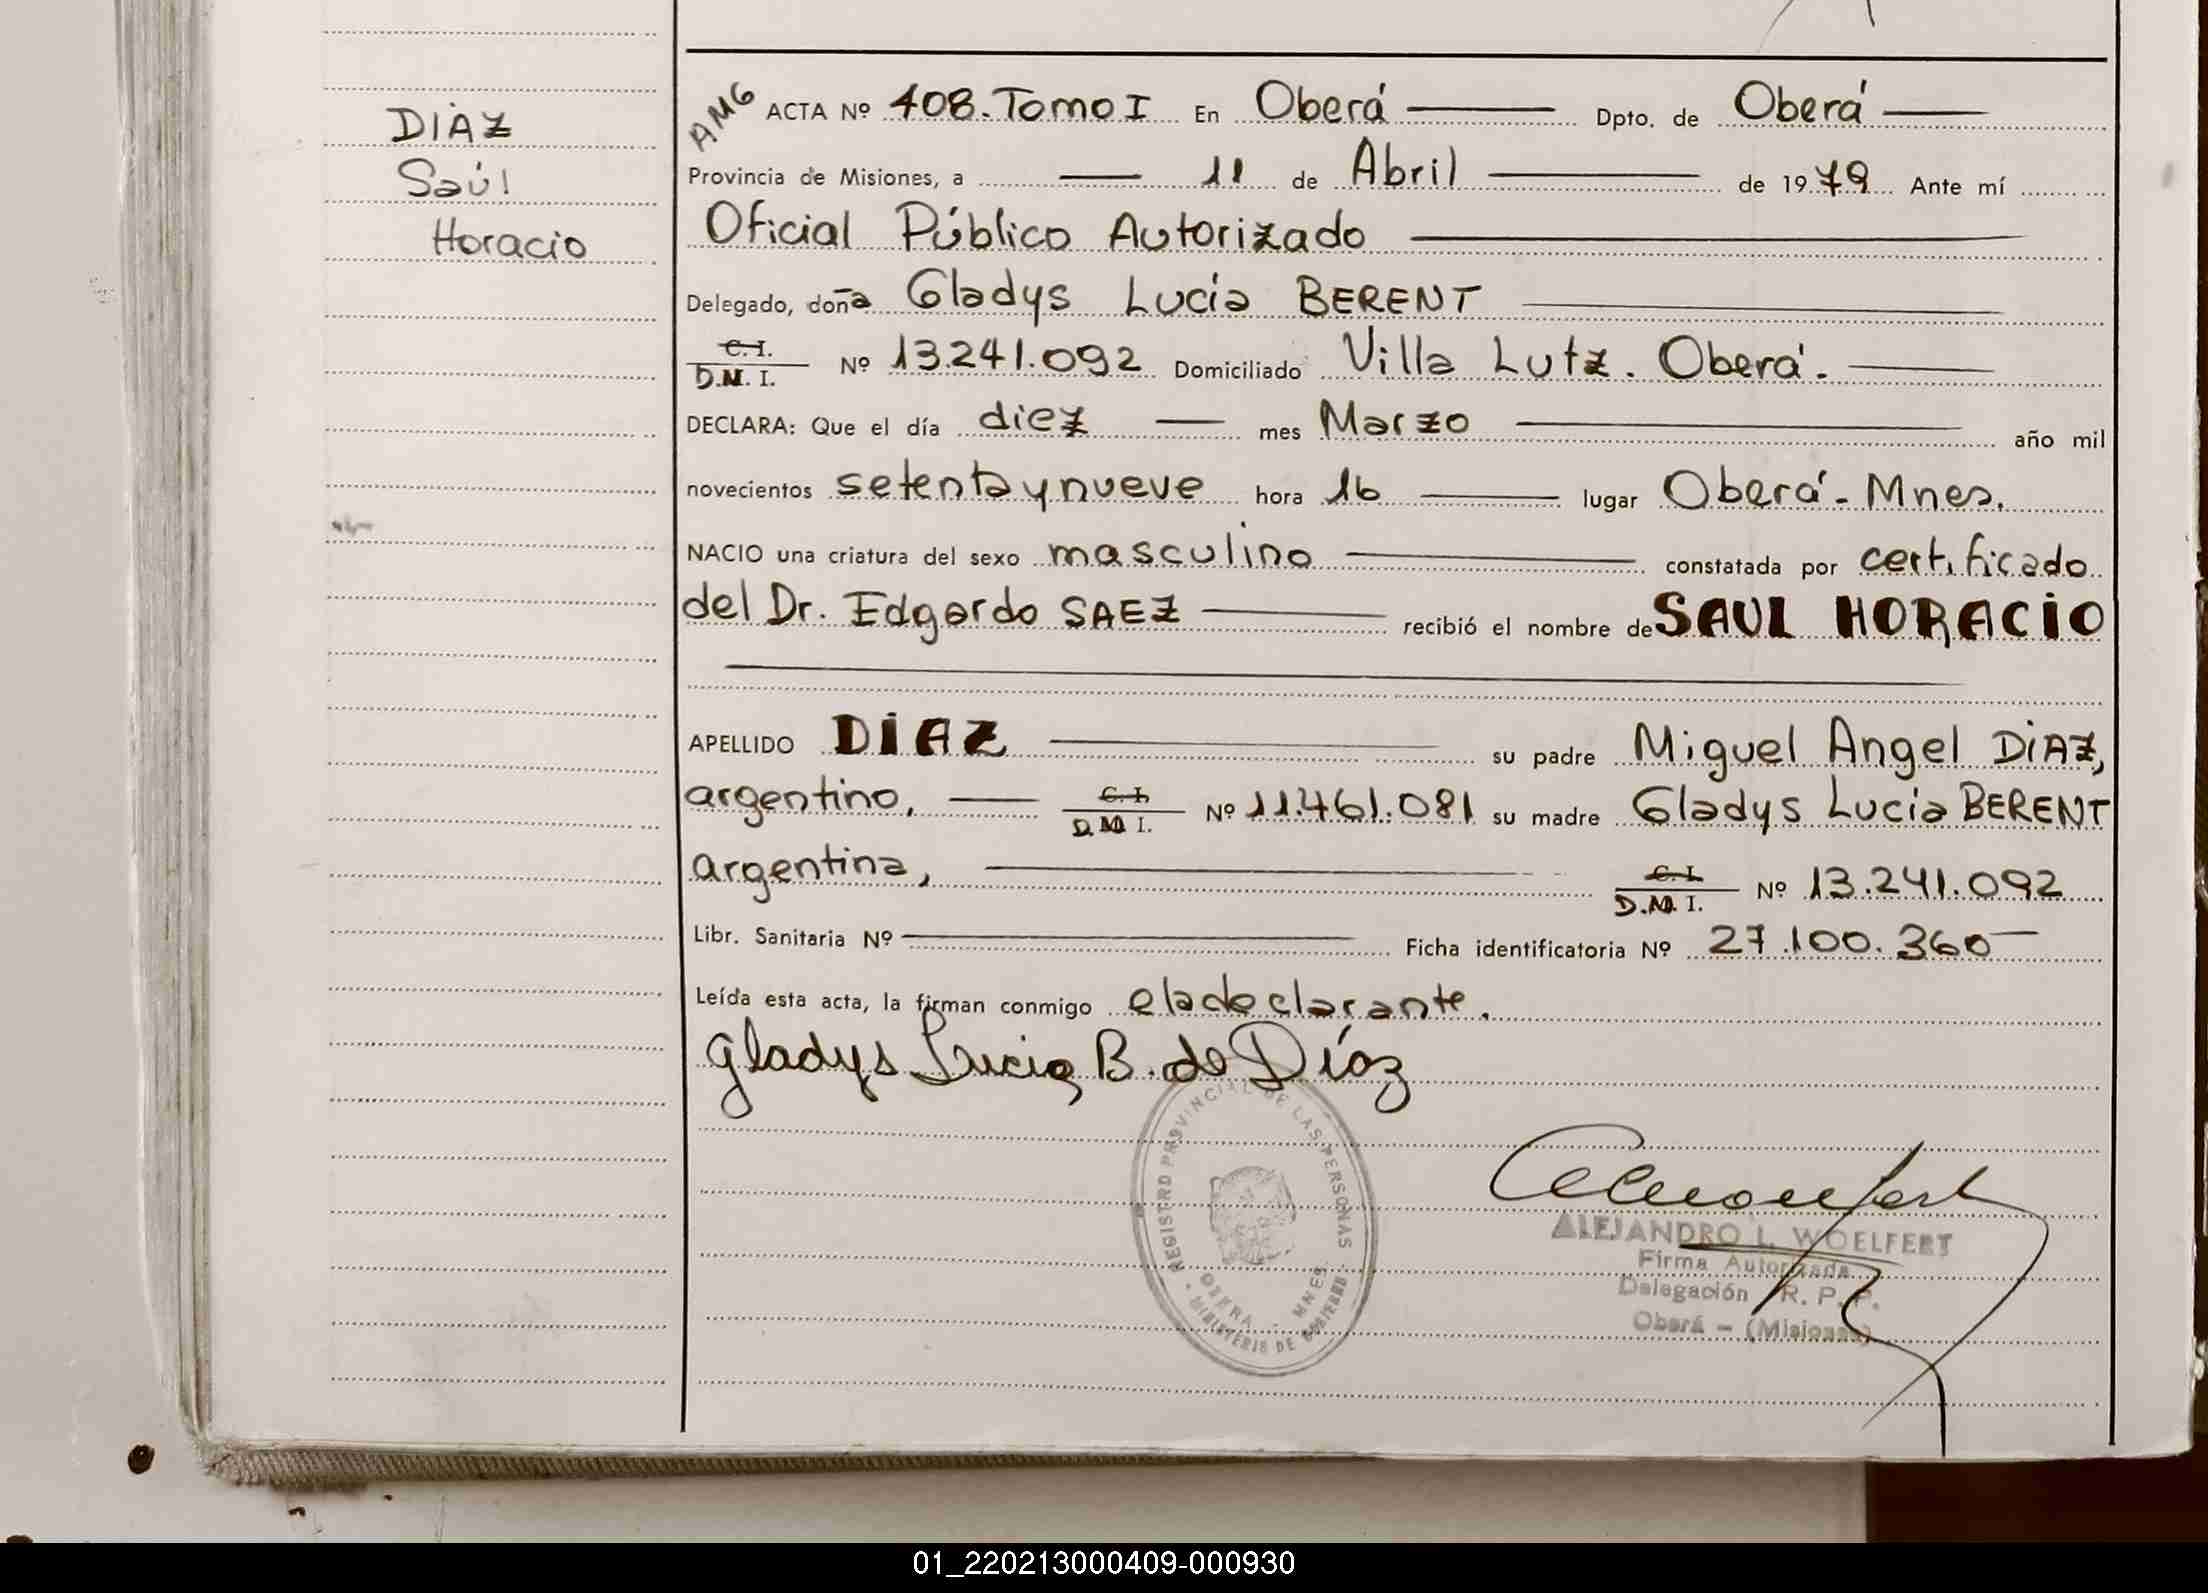 DIAZ
Saúl
Horacio
AMG
ACTA Nº 408. Tomo I En Oberá Dpto. de Oberá
Provincia de Misiones, a 11 de Abril de 1979 Ante mí
Oficial Público Autorizado
Delegado, doña Gladys Lucía BERENT
C. I.
D.N.I. Nº 13.241.092 Domiciliado Villa Lutz. Oberá.
DECLARA: Que el día diez mes Marzo año mil
novecientos setenta y nueve hora 16 lugar Oberá - Mnes.
NACIO una criatura del sexo masculino constatada por certificado
del Dr. Edgardo SAEZ recibió el nombre de SAUL HORACIO
APELLIDO DIAZ su padre Miguel Angel DIAZ,
argentino, C. I. D.N.I. Nº 11.461.081 su madre Gladys Lucía BERENT
argentina, C. I. D.N.I. Nº 13.241.092
Libr. Sanitaria Nº Ficha identificatoria Nº 27.100.360
Leída esta acta, la firman conmigo el a declarante.
Gladys Lucia B. de Díaz
REGISTRO PROVINCIAL DE LAS PERSONAS
OBERA - MNES.
MINISTERIO DE GOBIERNO
ALEJANDRO L. WOELFERT
Firma Autorizada
Delegación R. P. P.
Oberá - (Misiones)
01_220213000409-000930